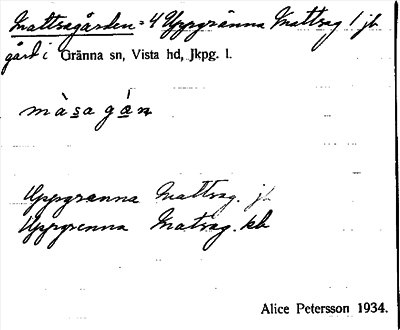 Mattsagården = 4 Uppgränna Mattsag 1 jb
gård i Gränna sn, Vista hd, Jkpg. l.
màsagán
Uppgränna Mattsag. jb
Uppgrenna Matsag. kb
Alice Petersson 1934.